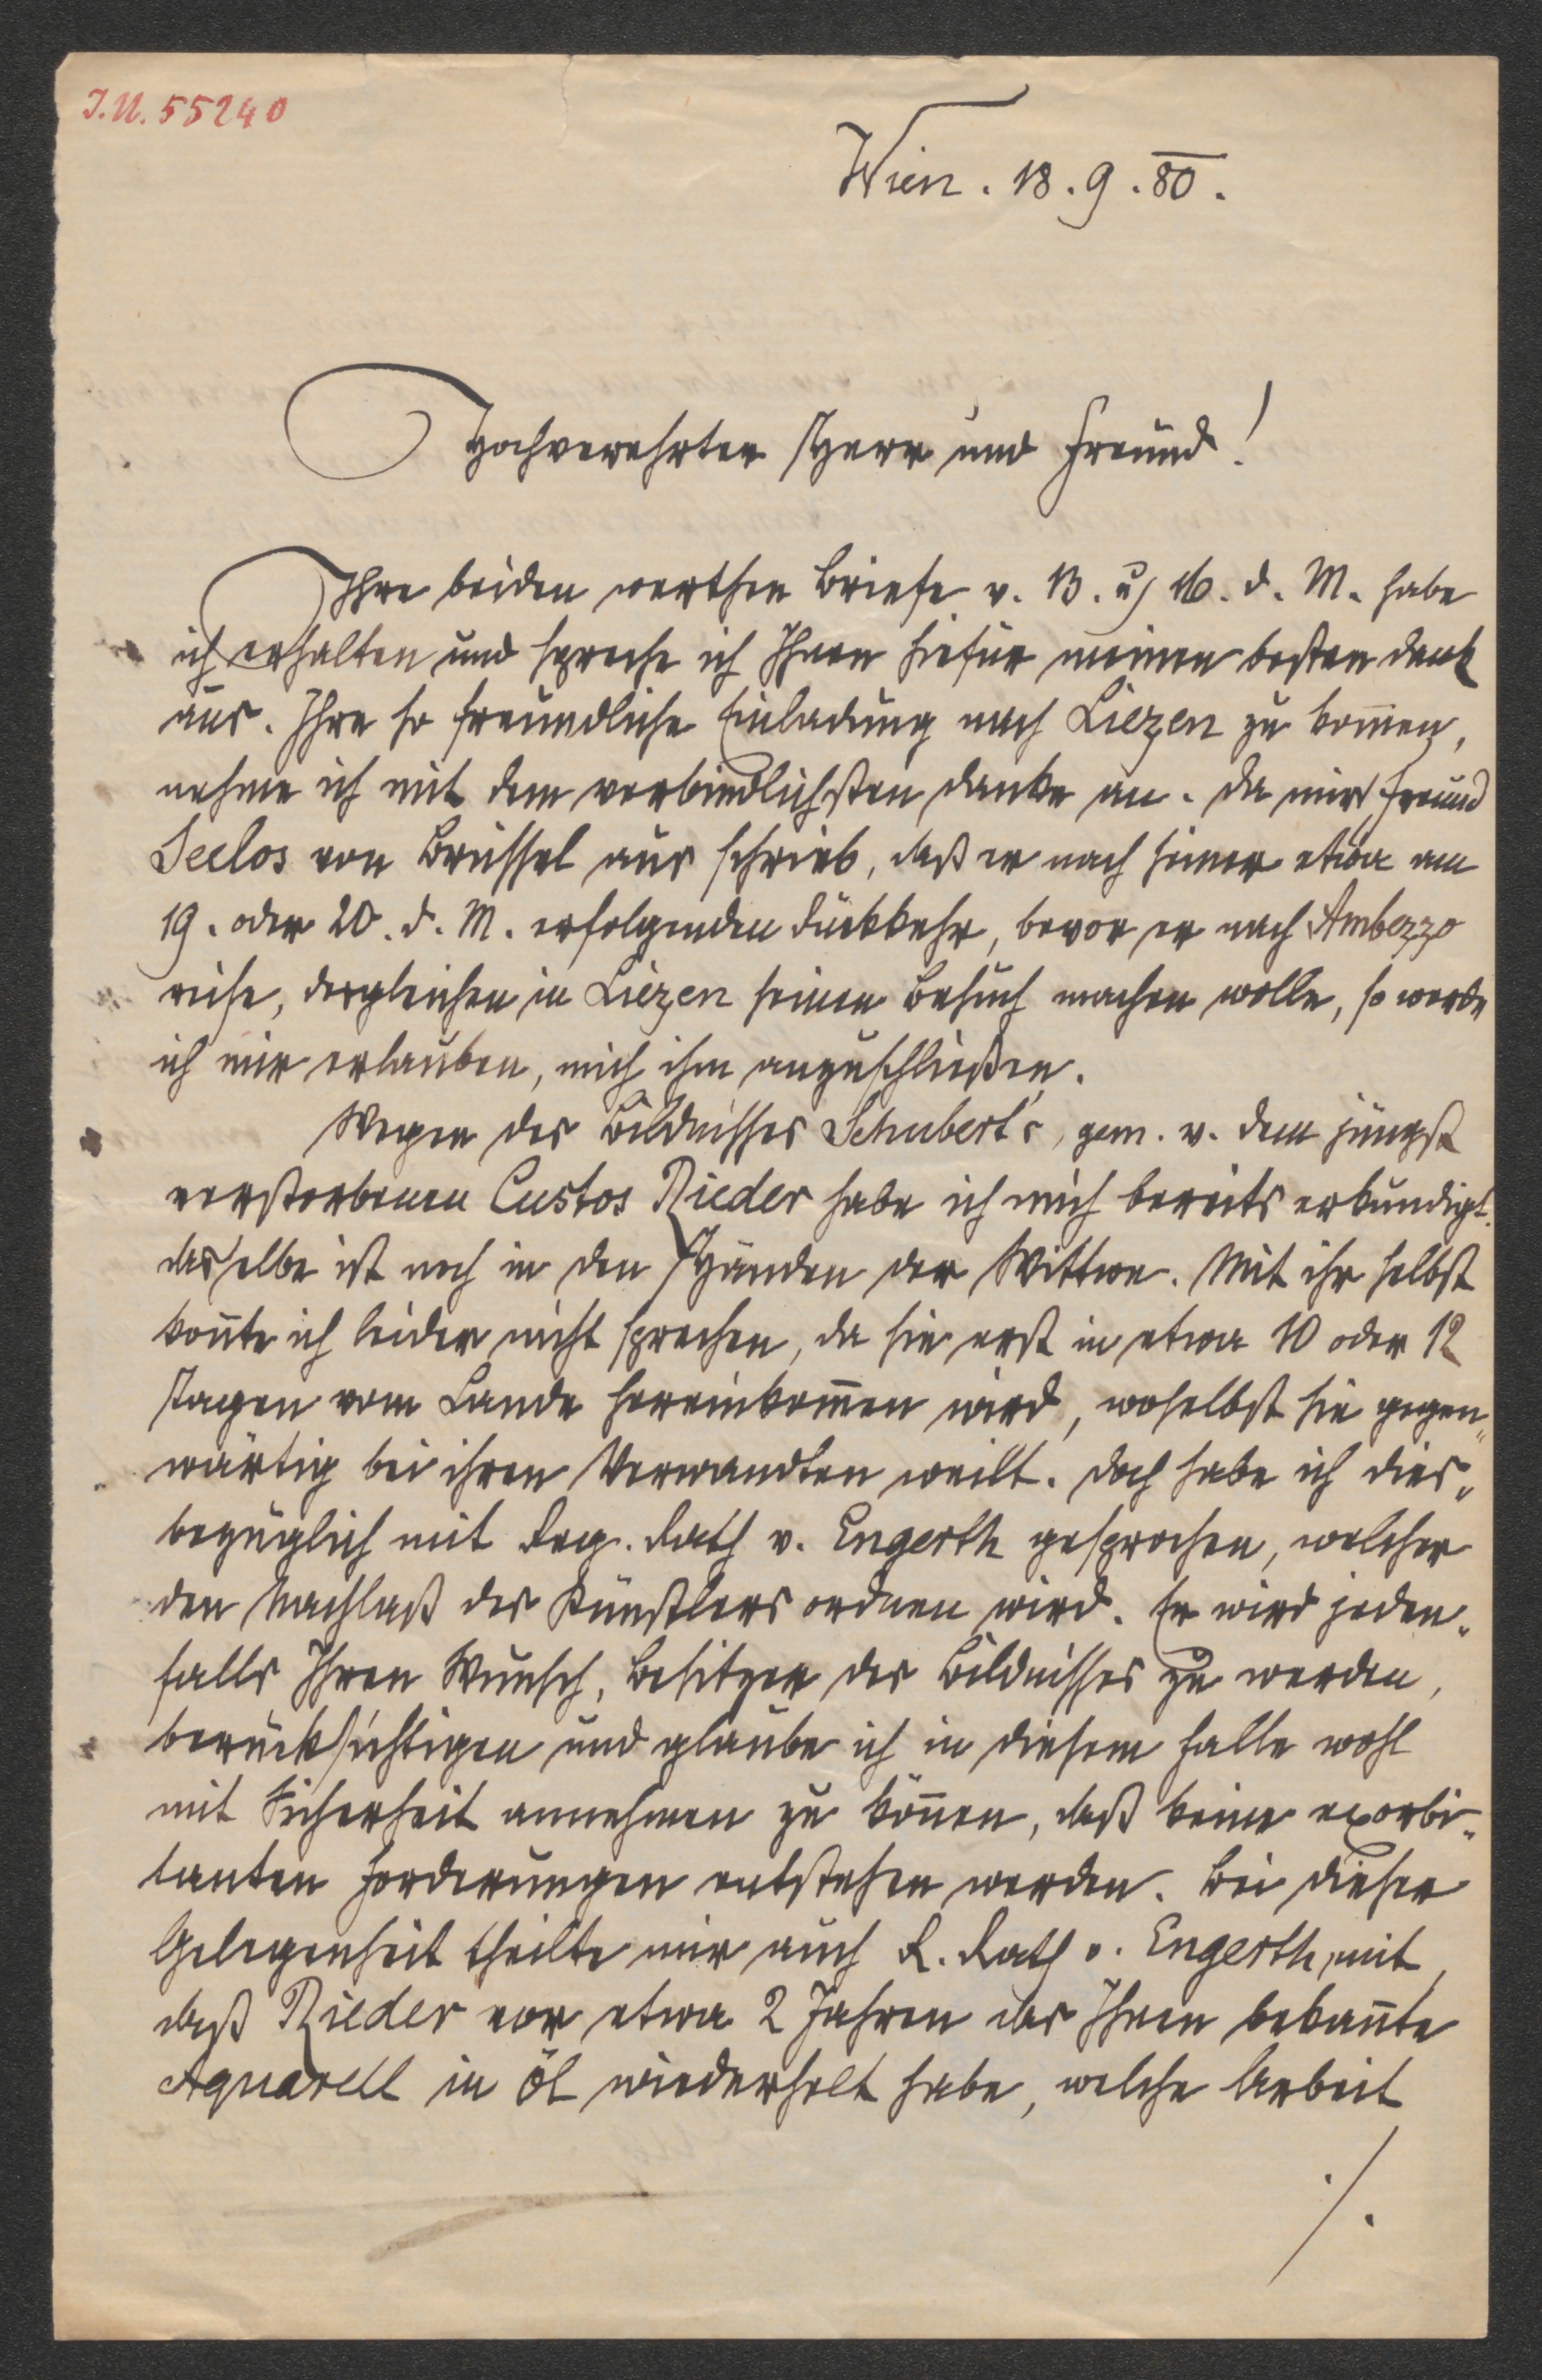 I.N. 55240
Wien. 18. 9. 80.
Hochverehrter Herr und Freund!
Ihre beiden werthen Briefe v. 13. u 16. d. M. habe
ich erhalten und spreche ich Ihnen hiefür meinen besten Dank
aus. Ihre so freundliche Einladung nach Liezen zu kom̅en,
nehme ich mit dem verbindlichsten Danke an. Da mir Freund
Seelos von Brüssel aus schrieb, daß er nach seiner etwa am
19. oder 20. d. M. erfolgenden Rückkehr, bevor er nach Ambezzo
reise, desgleichen in Liezen seinen Besuch machen wolle, so werde
ich mir erlauben, mich ihm anzuschließen.
Wegen des Bildnisses Schubert's, gem. v. dem jüngst
verstorbenen Custos Rieder habe ich mich bereits erkundigt.
dasselbe ist noch in den Händen der Wittwe. Mit ihr selbst
kon̅te ich leider nicht sprechen, da sie erst in etwa 10 oder 12
Tagen vom Lande hereinkom̅en wird, woselbst sie gegen„
wärtig bei ihren Verwandten weilt. Doch habe ich dies„
bezüglich mit Reg. Rath v. Engerth gesprochen, welcher
den Nachlaß des Künstlers ordnen wird. Er wird jeden„
falls Ihren Wunsch, Besitzer des Bildnisses zu werden,
berücksichtigen und glaube ich in diesem Falle wohl
mit Sicherheit annehmen zu kön̅en, daß keine exorbi„
tanten Forderungen entstehen werden. Bei dieser
Gelegenheit theilte mir auch R. Rath v. Engerth mit,
daß Rieder vor etwa 2 Jahren das Ihnen bekan̅te
Aquarell in Öl wiederholt habe, welche Arbeit
./.